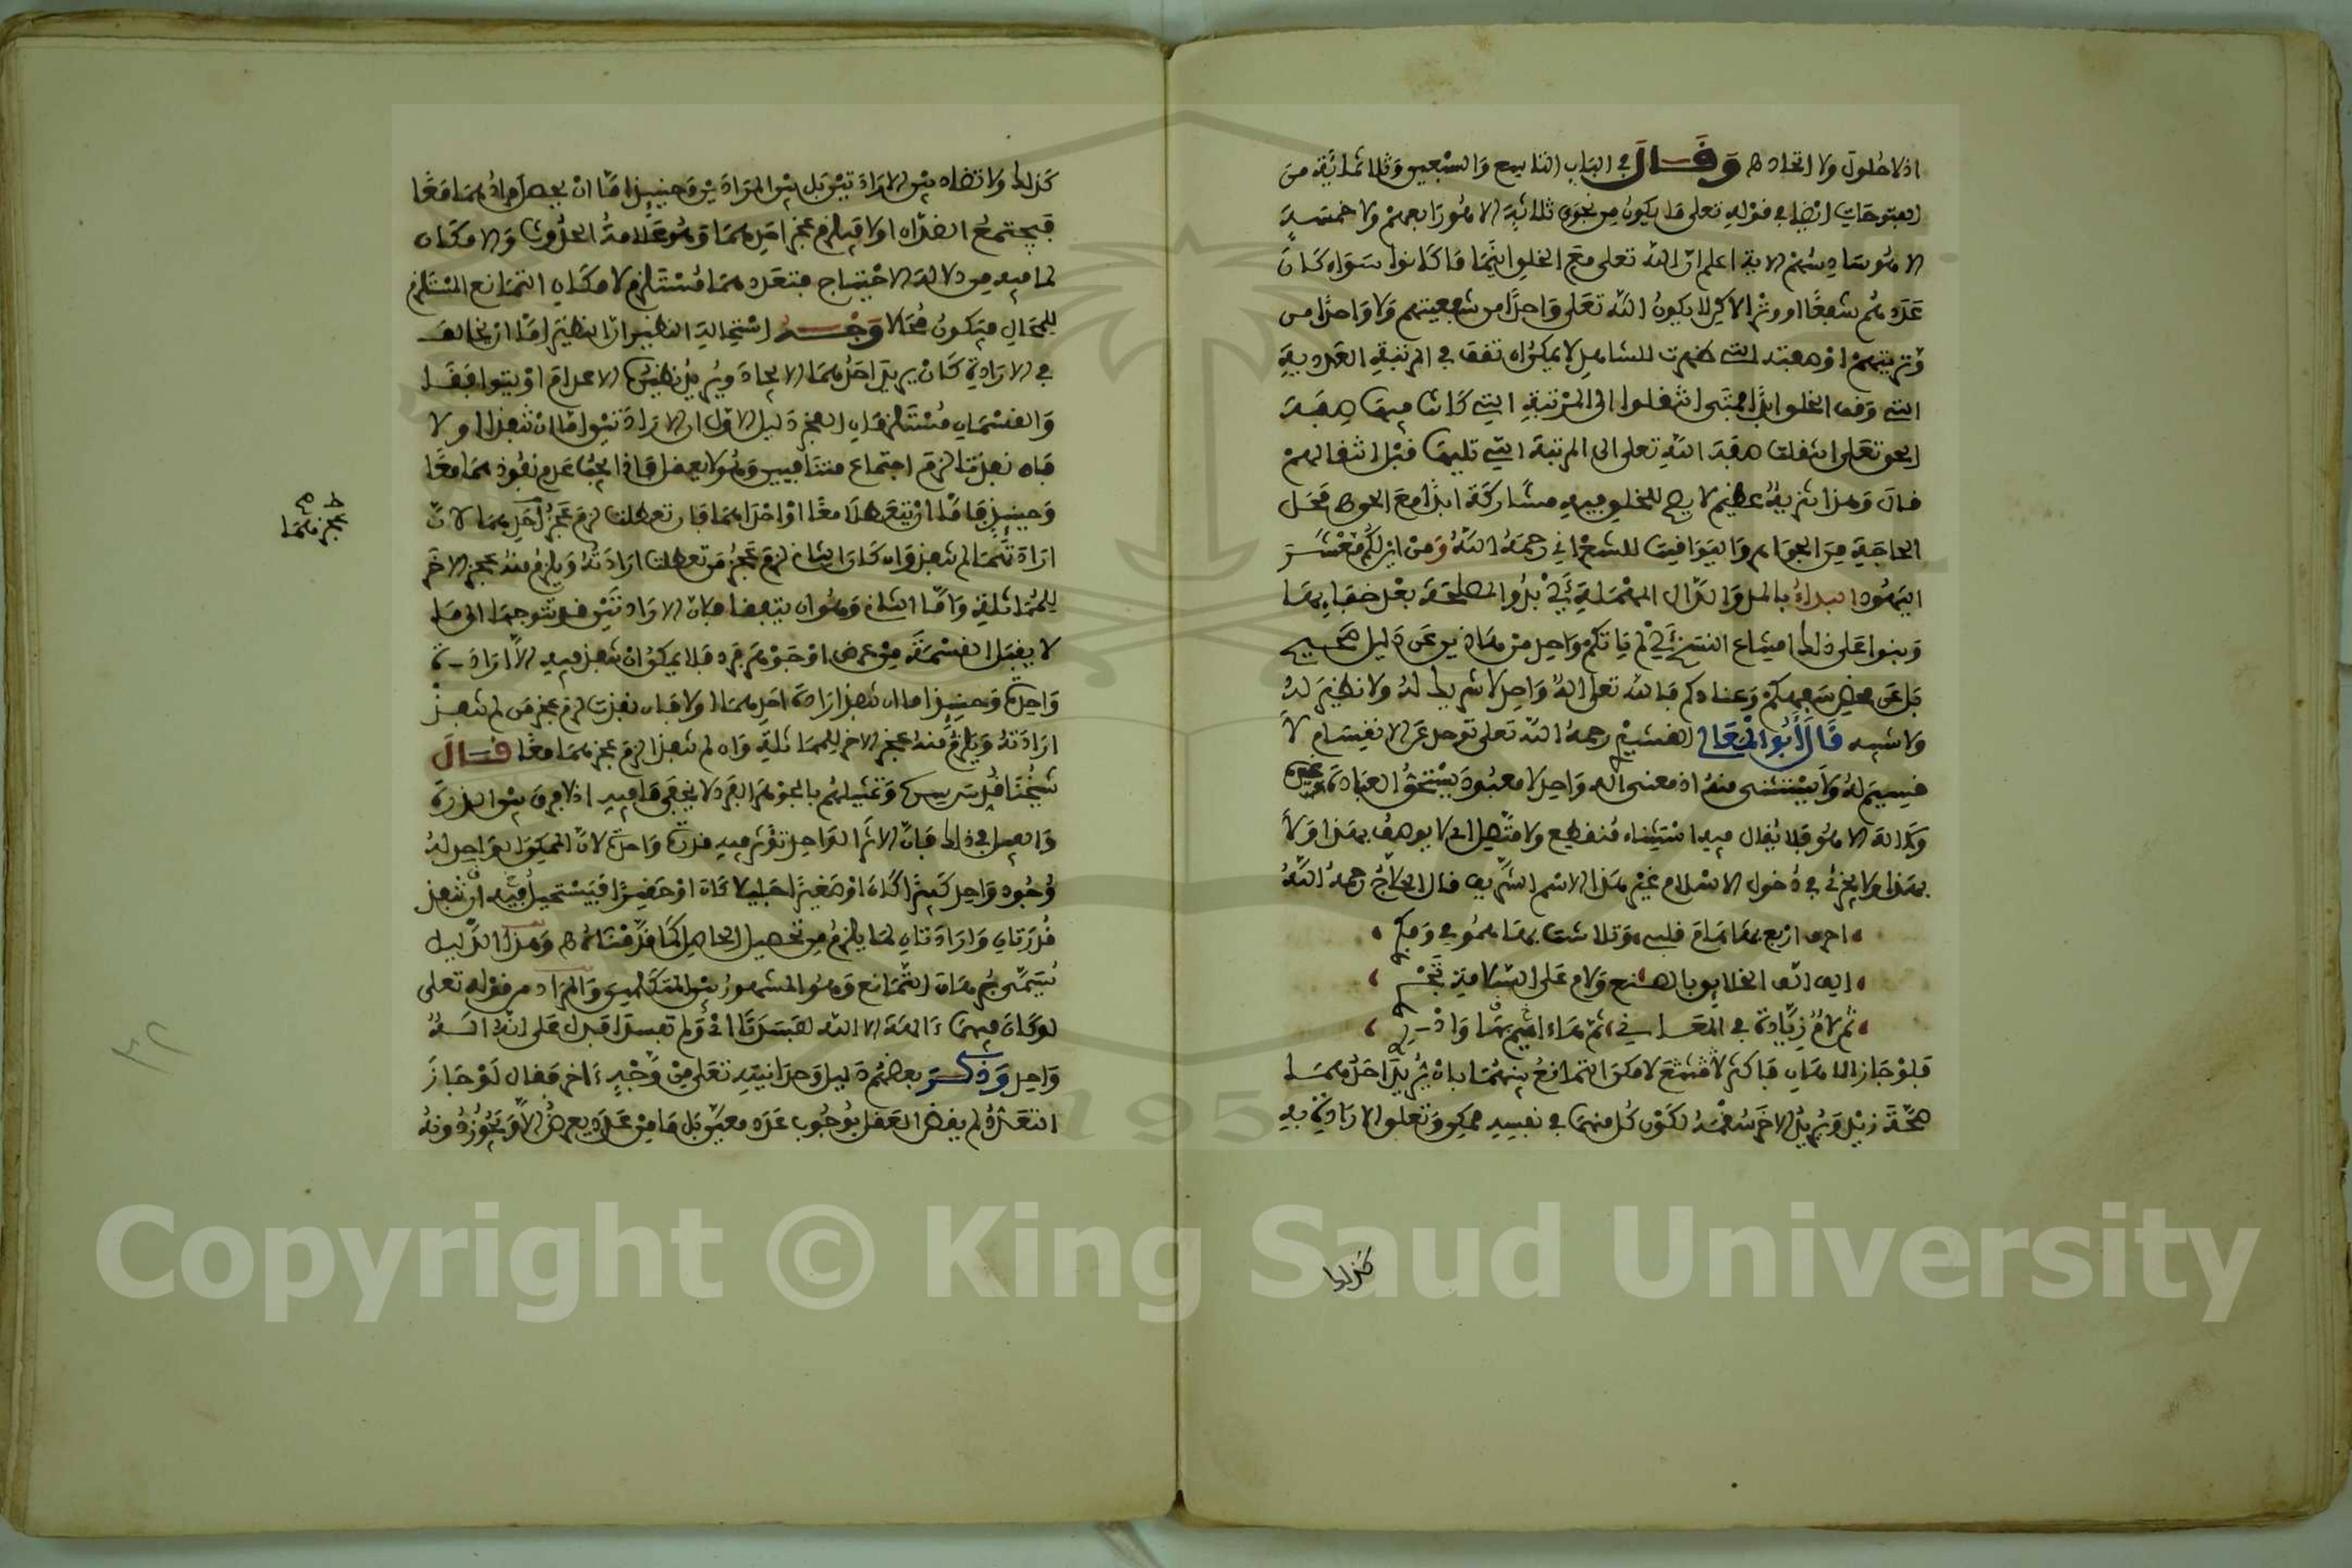 اذ لا حلول ولا اتحاد ه وقال في الباب التاسع والسبعين وثلاثمائة من
الفتوحات ايضا في قوله تعلى ما يكون من نجوى ثلاثة الا هو رابعهم ولا خمسة
الا هو سادسهم الاية اعلم ان الله تعلى مع الخلق اينما كانوا سواء كان
عددهم شفعا او وترا لاكن لا يكون الله تعلى واحدا من شفعيتهم ولا واحدا من
وتريتهم اذ صفته التي ظهرت للشاهد لا يمكن ان تقف في المرتبة العددية
التي وقف الخلق ابدا فمتى انتقلوا الى المرتبة التي كانت فيها صفة
الحق تعلى انتقلت صفة الله تعلى الى المرتبة التي تليها قبل انتقالهم
قال وهذا تنزيه عظيم لا يصح للخلق فيه مشاركة ابدا مع الحق ه محل
الحاجة من الجواهر واليواقيت للشعراني رحمه الله ومن اين لكم معشر
اليهود البداء بالدال المهملة اي بدو المصلحة بعد خفايها
وبنوا على ذلك امتناع النسخ اي لم ياتكم واحد من هاذين عن دليل صحيح
بل عن محض سفهكم وعنادكم فالله تعلى اله واحد لا شريك له ولا نظير له
ولا شبيه قال أبو المعالي القشيري رحمه الله تعلى توحد عن الانقسام لا
قسيم له ولا يستثنى منه اذ معنى اله واحد لا معبود يستحق العبادة غيره
ولا اله الا هو فلا يقال فيه استثناء منقطع ولا متصل اي لا يوصف بهذا ولا
بهذا ولا يجزئ في دخول الاسلام غير هذا الاسم الشريف قال الحلاج رحمه الله
احرف اربع بها هام قلبي وتلاشت بها همومي وفكري
الف الف الخلايق بالصنع ولام على الملامة تجري
ثم لام زيادة في المعاني ثم هاء اهيم بها وادري
فلو جاز الاهان فاكثر لامكن التمانع بينهما بان يريد احدهما
صحة زيد ويريد الاخر سقمه لكون كل منهما في نفسه ممكن وتعلق الارادة به
كذلك
كذلك ولا تضاد بين الارادتين بل بين المرادين وحينيذ اما ان يحصل مرادهما معا
فيجتمع الضدان او لا فيلزم عجز احدهما وهو علامة الحدوث والامكان
لما فيه من دلالة الاحتياج فتعددهما مستلزم لامكان التمانع المستلزم
للمحال فيكون محالا وجه استحالة النظير ان النظير اما ان يخالف
في الارادة كان يريد احدهما الايجاد ويريد نظيره الاعدام او يتوافقا
والقسمان مستلزمان العجز دليل الاول ان الارادتين اما ان تنفذا او لا
فان نفذتا لزم اجتماع متنافيين وهو لا يعقل فاذا يجب عدم نفوذهما معا
وحينيذ فاما ان تتعطلا معا او احداهما فان تعطلتا لزم عجز احدهما لان
ارادتهما لم تنفذ وان كان الثاني لزم عجز من تعطلت ارادته ويلزم منه عجز الاخر
للمماثلة واما الثاني وهو ان يتفقا فبان الارادتين قد تتوجها الى ما
لا يقبل القسمة من عرض او جوهر فرد فلا يمكن ان تنفذ فيه الا ارادة
واحدة وحينيذ اما ان تنفذ ارادة احدهما او لا فان نفذت لزم عجز من لم تنفذ
ارادته ويلزم منه عجز الاخر للمماثلة وان لم تنفذا لزم عجزهما معا قال
شيخنا وتمثيلهم بالجوهر الفرد لا يخفى ما فيه اذ لا فرق بين الذرة
والفيل في ذلك فان الاثر الواحد تؤثر فيه قدرة واحدة لان الممكن الواحد له
وجود واحد كبيرا كان او صغيرا جليلا كان او حقيرا فيستحيل فيه ان تنفذ
قدرتان وارادتان لما يلزم من تحصيل الحاصل كما قدمناه ه وهذا الدليل
يسمى برهان التمانع وهو المشهور بين المتكلمين والمراد من قوله تعلى
لو كان فيهما ءالهة الا الله لفسدتا اي ولم تفسدا فدل على انه اله
واحد وذكر بعضهم دليل وحدانيته تعلى من وجه ءاخر فقال لو جاز
التعدد لم يقض العقل بوجوب عدد معين بل ما من عدد يعرض الا ويجوز دونه
عجزهما
صح
٣٢
Copyright © King Saud University
195